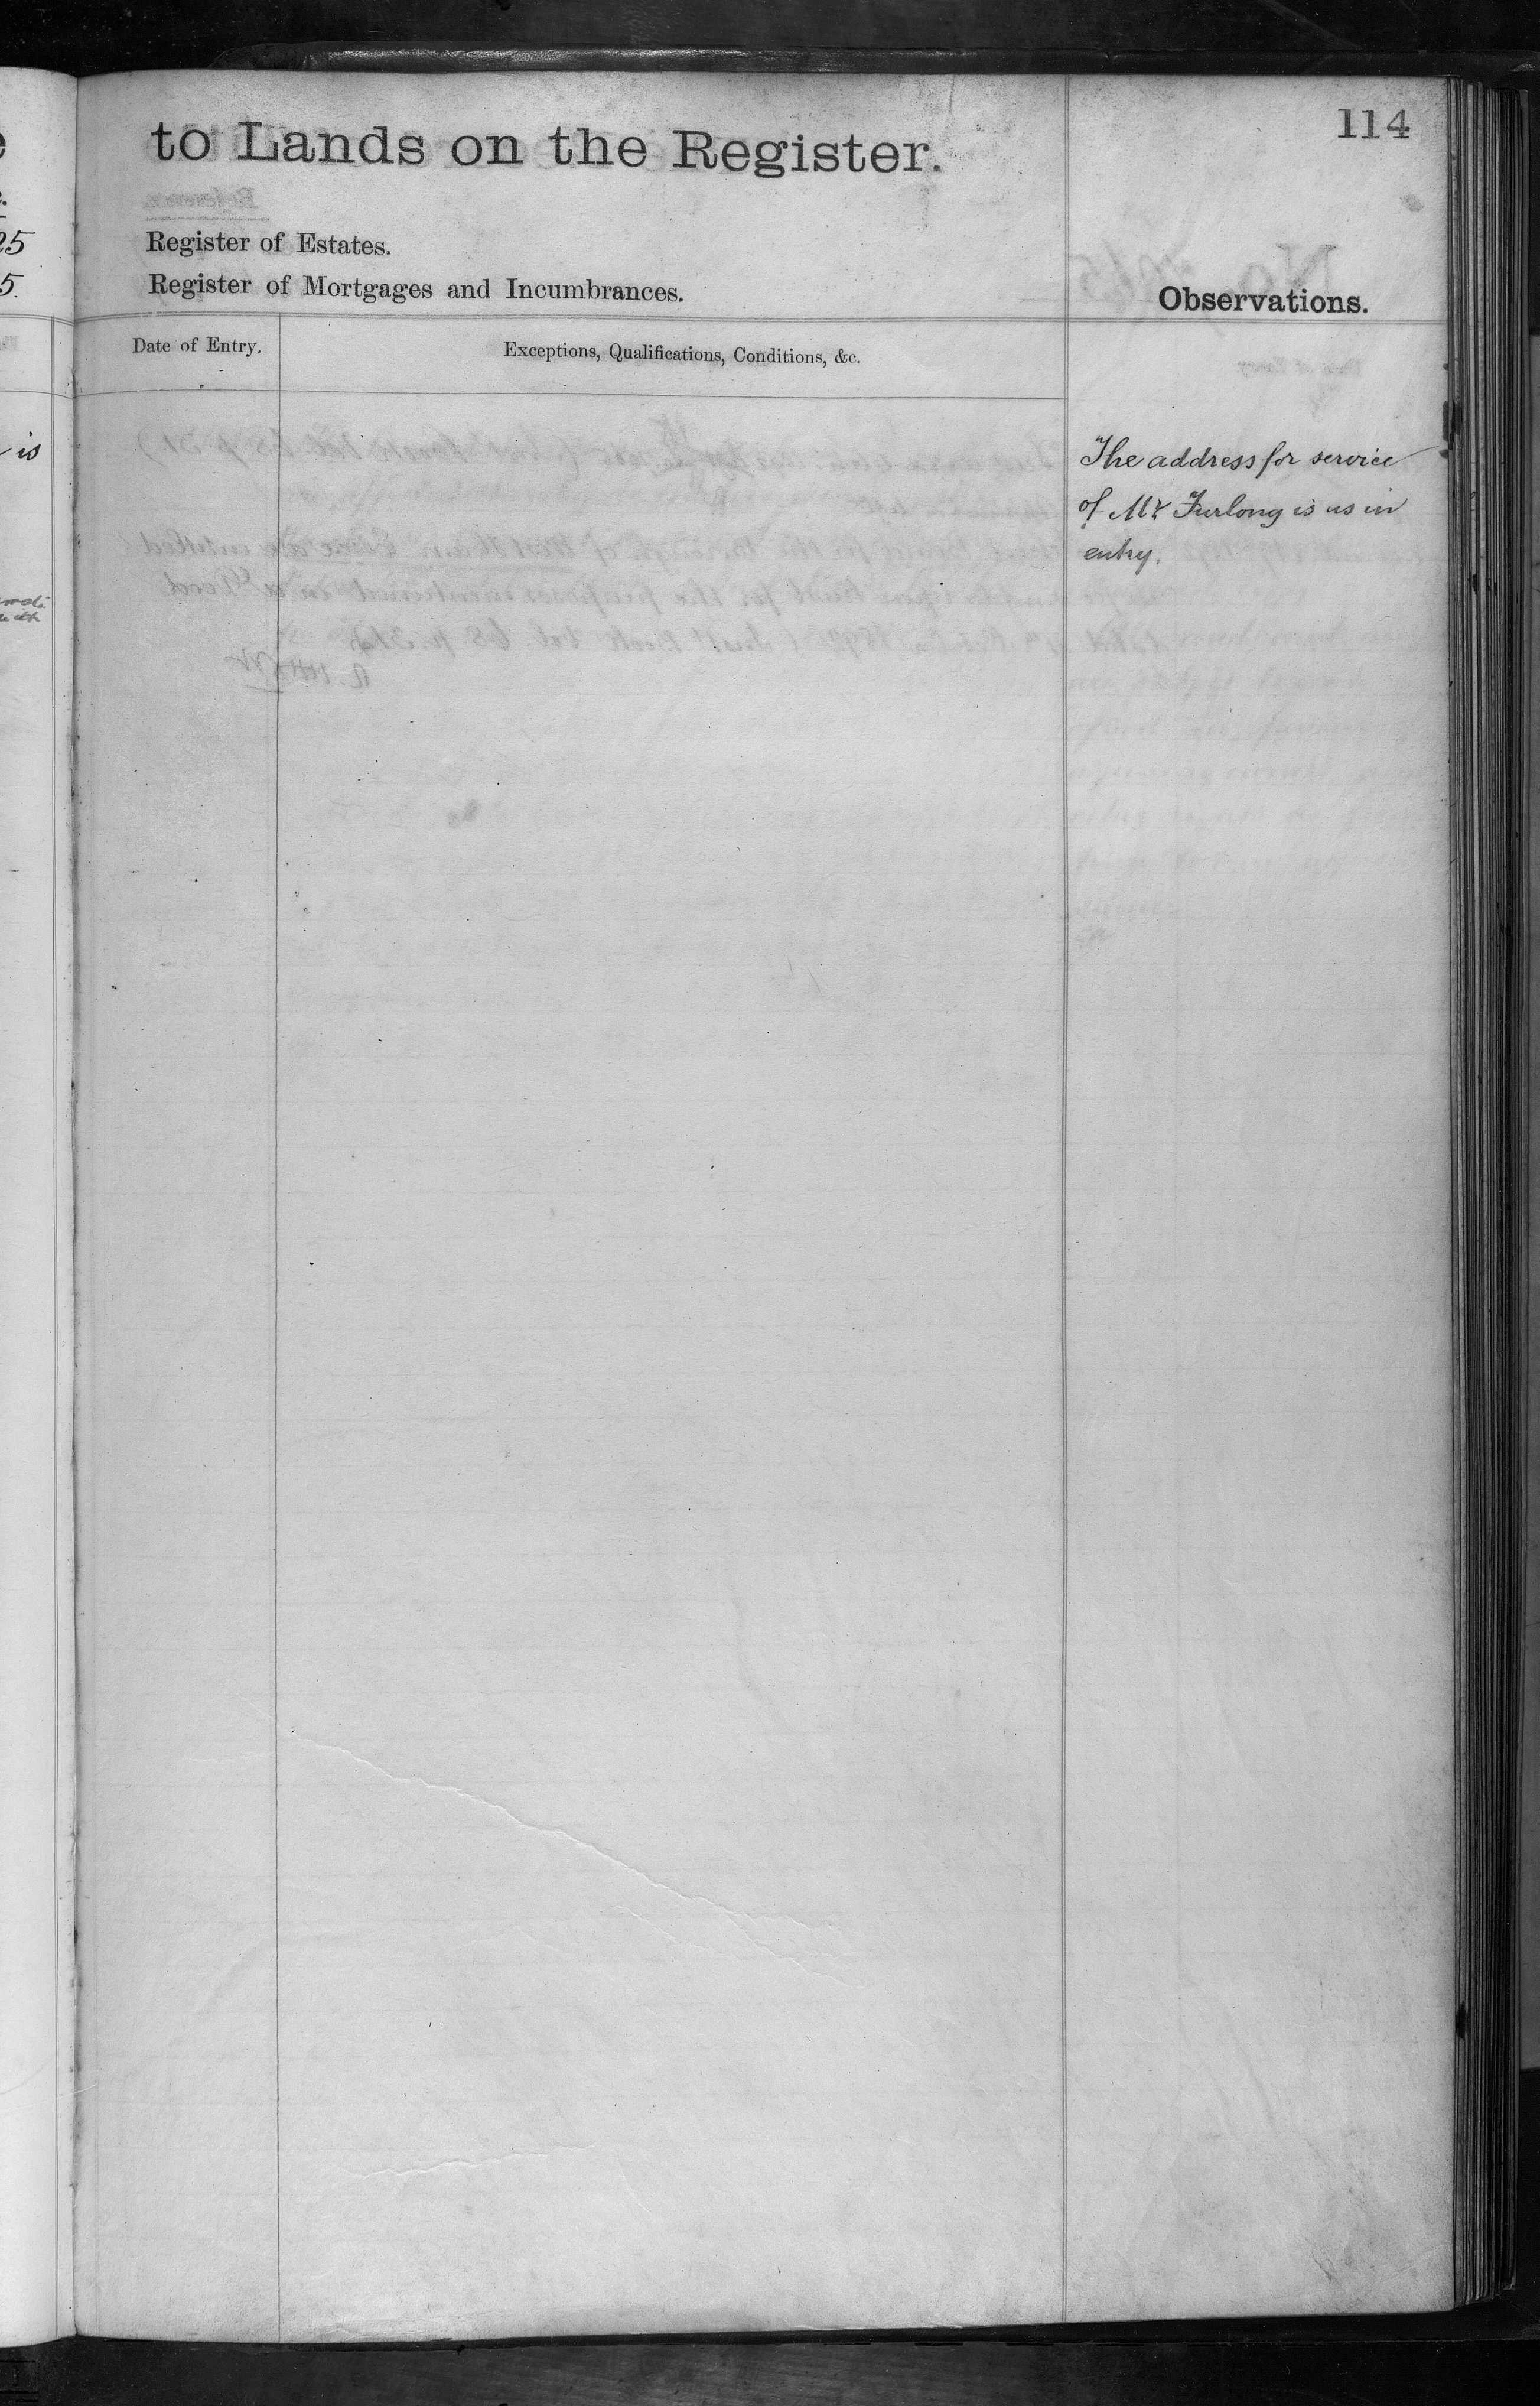 114
to Lands on the Register.
Register of Estates.
Register of Mortgages and Incumbrances.
Observations.
Date of Entry.
Exceptions, Qualifications, Conditions, &c.
is
The address for service
of Mr Furlong is as in
entry.